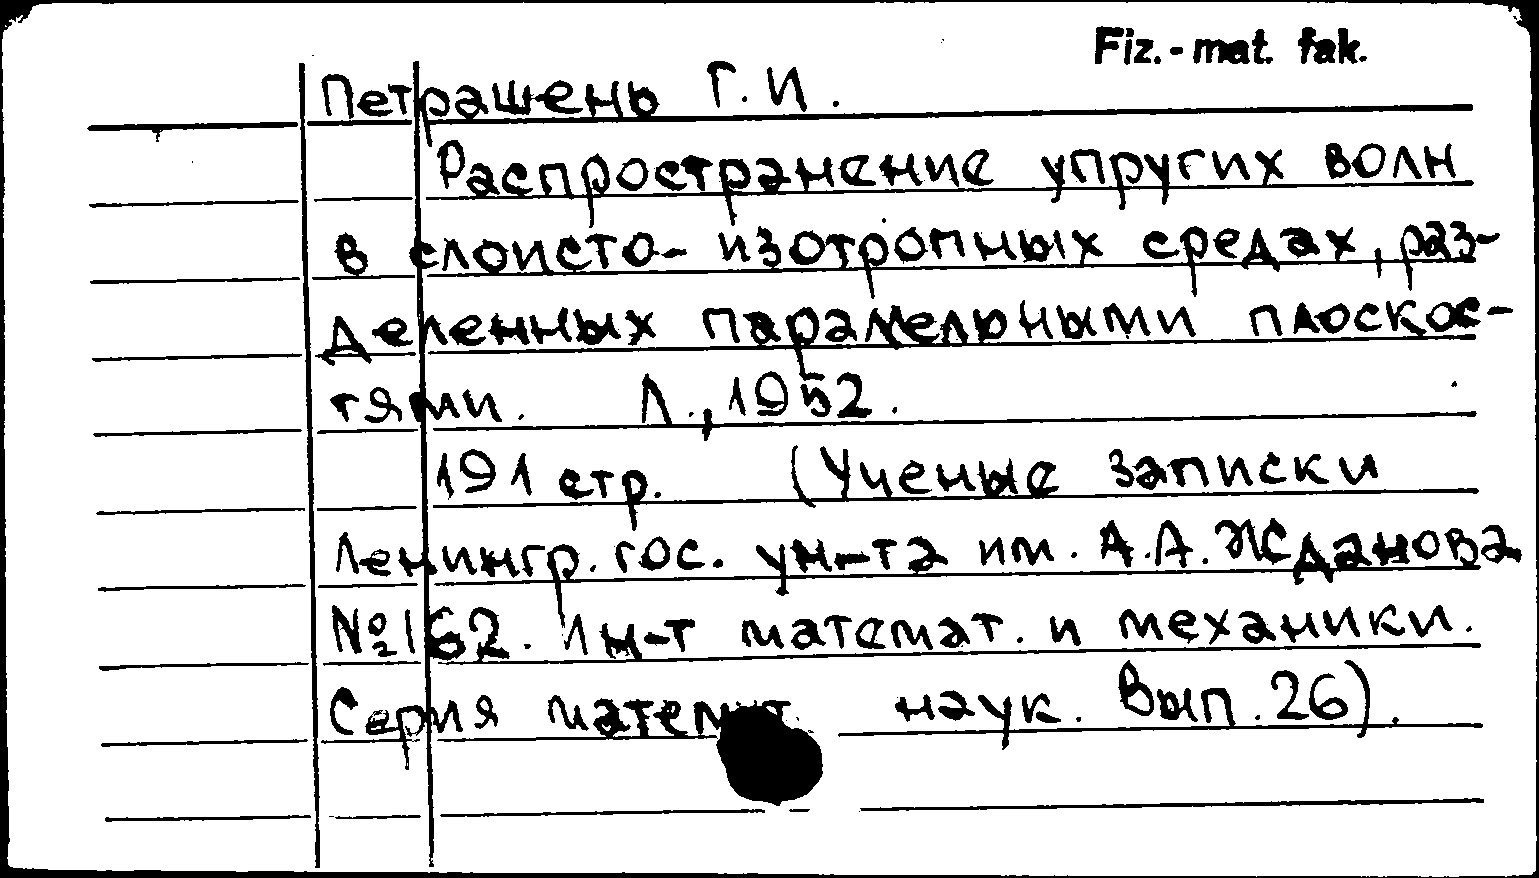 Fiz.-mat. fak.
Петрашень Г.И.
Распространение упругих волн
в слоисто-изотропных средах, раз-
деленных параллельными плоскос-
тями. Л., 1952.
191 стр. (Ученые записки
Ленингр. гос. ун-та им. А.А. Жданова
№162. Ин-т математ. и механики.
Серия математ. наук. Вып. 26).